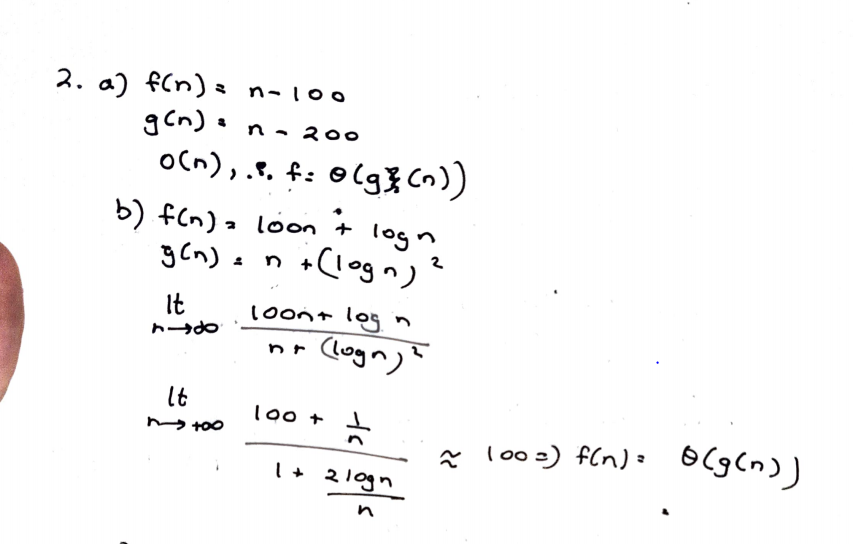 2. a) f(n) = n - 100
g(n) = n - 200
O(n), ∴ f = Θ(g(n))
b) f(n) = 100n + log n
g(n) = n + (log n)²
lt n→∞ (100n + log n) / (n + (log n)²)
lt n→+∞ (100 + 1/n) / (1 + 2 log n / n) ≈ 100 ⇒ f(n) = Θ(g(n))